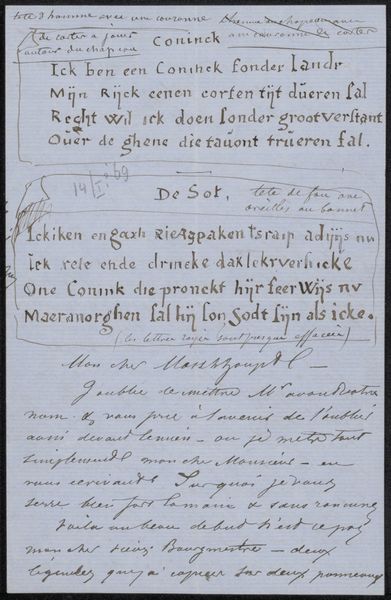 tete d'homme avec une couronne
de cartes a jouer
autour du chapeau
une couronne de cartes
Coninck
Ick ben een Coninck sonder landt
Mijn Rijck eenen corten tijt dueren sal
Recht wil ick doen sonder groot verstant
Over de ghene die tavont trueren sal.
14/I/69
De Sot,
tete de fou avec
oreilles au bonnet
Ick kiken en
Ick ende drincke dat
One Conink die pronckt hijr seer Wijs nu
Maer anorghen sal hij son Sodt sijn als icke.
(les lettres sont presque effacées)
Mon cher
J'oublie de mettre Mr avant votre
nom. & vous prie à l'avenir de l'oublier
aussi devant le mien - ou je mettrai tout
simplement mon cher Monsieur - en
vous écrivant. Sur quoi je vous
serre bien fort la main & sans rancune
Voilà un beau début n'est ce pas
mon cher Bourgmestre - deux
légendes que j'ai copiées sur deux panneaux